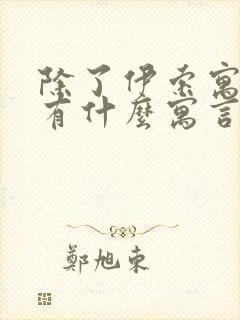 除了伊索寓
有什麼寓言
鄭旭東